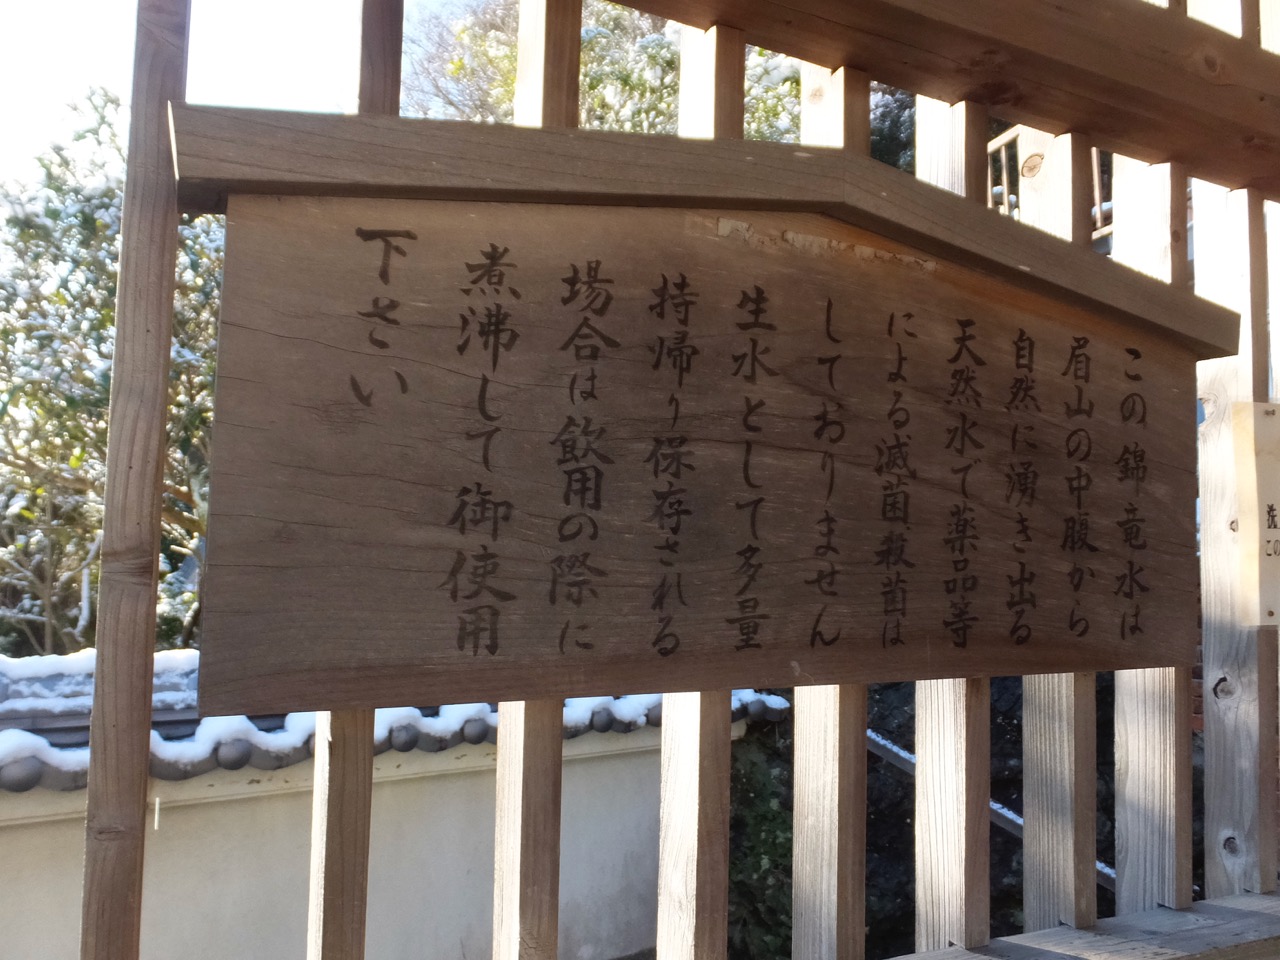 この錦竜水は
眉山の中腹から
自然に湧き出る
天然水で薬品等
による滅菌殺菌は
しておりません
生水として多量
持帰り保存される
場合は飲用の際に
煮沸して御使用
下さい
洗
この